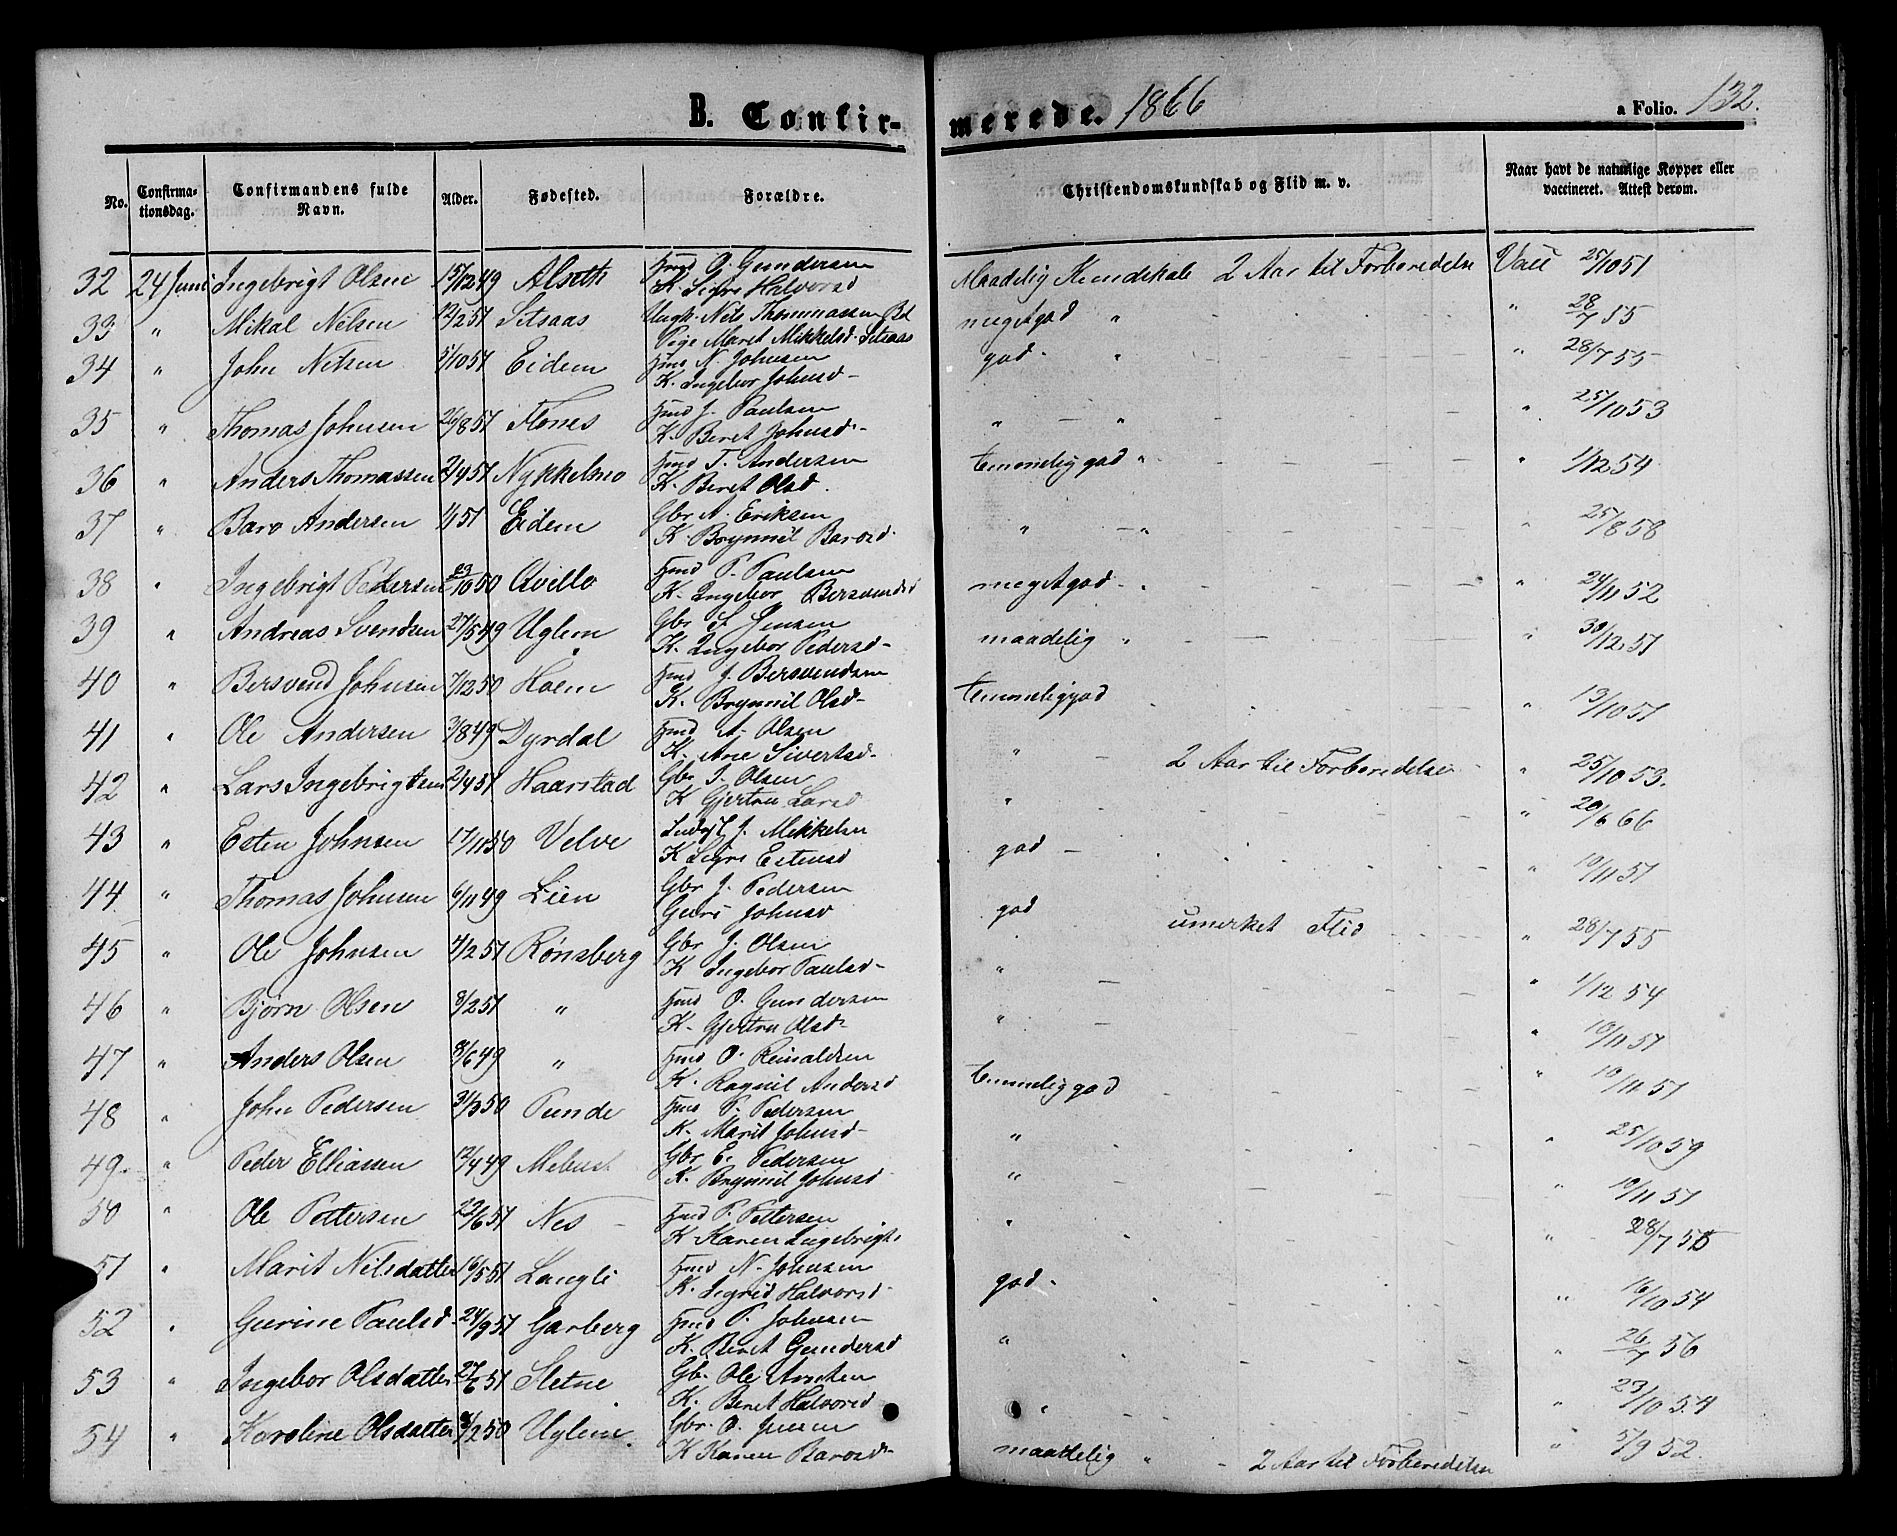 B. Confirmerede. 1866 a Folio. 132.
No. Confirmationsdag. Confirmandens fulde Navn. Alder. Fødested. Forældre. Christendomskundskab og Flid m. v. Naar havt de naturlige Kopper eller vaccineret. Attest derom.
32 24 Juni Ingebrigt Olsen 15/12 49 Alseth Hmd O. Gundersen Maadelig Kundskab 2 Aar til Forberedelse Vacc 25/10 51
K. Sigri Halvorsd
33 " Mikal Nilsen 12/2 51 Setsaas Ungk. Nils Thommassen meget god " " 28/7 55
Pige Marit Mikkelsd. Setsaas
34 " John Nilsen 5/10 51 Eidem Hmd N. Johnsen god " " 28/7 55
K. Ingebor Johnsd
35 " Thomas Johnsen 26/8 51 Flones Hmd J. Paulsen " " " 25/10 53
K. Beret Johnsd
36 " Anders Thomassen 2/4 51 Nykkelmo Hmd T. Andersen temmelig god " " 1/12 54
K. Beret Olsd.
37 " Baro Andersen 1/1 51 Eidem Gbr A. Eriksen " " " 25/8 58
K. Brynnil Barosd.
38 " Ingebrigt Pedersen 23/10 50 Qvello Hmd P. Paulsen meget god " " 24/11 52
K. Ingebor Bersvendsd
39 " Andreas Svendsen 27/5 49 Uglem Gbr S. Jensen maadelig " " 30/12 51
K. Ingebor Pedersd
40 " Bersvend Johnsen 7/12 50 Hoem Hmd J. Bersvendsen temmelig god " 13/10 51
K. Brynnil Olsd
41 " Ole Andersen 3/8 49 Dyrdal Hmd A. Olsen " 2 Aar til Forberedelse " 25/10 53.
K. Ane Sivertsd.
42 " Lars Ingebrigtsen 2/4 51 Haarstad Gbr I. Olsen " " 20/6 66
K Gjertru Larsd
43 " Esten Johnsen 17/11 50 Velve J. Mikkelsen god " 10/11 51
K Sigri Estensd
44 " Thomas Johnsen 6/11 49 Lien Gbr J. Pedersen god umerket Flid " 28/7 55
Guri Johnsd
45 " Ole Johnsen 4/2 51 Rønsberg Gbr J. Olsen " " 1/12 54
K Ingebor Paulsd
46 " Bjørn Olsen 8/2 51 " Hmd O. Gundersen " " 10/11 51
K. Gjertru Olsd
47 " Anders Olsen 8/6 49 " Hmd O. Reinaldsen temmelig god " 10/11 51
K. Ragnil Andersd
48 " John Pedersen 31/3 50 Hmd P. Pedersen " " 25/10 59
K. Marit Johnsd
49. " Peder Elliassen 12/4 49 Mebust Gbr E. Pedersen " " 10/11 51
K. Brynnil Johnsd
50 " Ole Pettersen 23/6 51 Nes Hmd P. Pettersen " " 28/7 55
K Karen Ingebrigts
51 " Marit Nilsdatter 16/5 51 Langli Hmd N. Johnsen god " 16/10 54
K. Sigrid Halvorsd
52 " Gurine Paulsd 24/9 51 Garberg Hmd P. Johnsen " " 26/7 56
K. Beret Gundersd
53 " Ingebor Olsdatter 27/6 51 Sletne Gb. Ole " " 23/10 54
K. Beret Halvorsd
54 " Karoline Olsdatter /2 50 Uglem Gbr. O. Jensen maadelig " 2 Aar til Forberedelse " 5/9 52.
K Karen Barosd